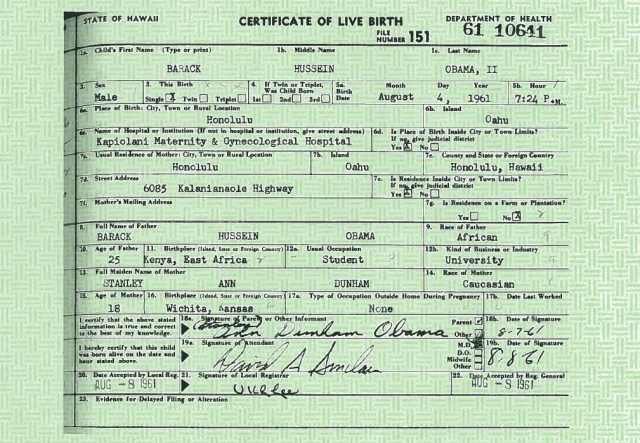 STATE OF HAWAII
CERTIFICATE OF LIVE BIRTH
DEPARTMENT OF HEALTH
FILE NUMBER 151
61 10641
1a. Child's First Name (Type or print) 1b. Middle Name 1c. Last Name
BARACK HUSSEIN OBAMA, II
2. Sex 3. This Birth 4. If Twin or Triplet, Was Child Born 5a. Birth Date Month Day Year 5b. Hour
Male Single X Twin Triplet 1st 2nd 3rd August 4, 1961 7:24 P.M.
6a. Place of Birth: City, Town or Rural Location 6b. Island
Honolulu Oahu
6c. Name of Hospital or Institution (If not in hospital or institution, give street address) 6d. Is Place of Birth Inside City or Town Limits? If no, give judicial district
Kapiolani Maternity & Gynecological Hospital Yes X No
7a. Usual Residence of Mother: City, Town or Rural Location 7b. Island 7c. County and State or Foreign Country
Honolulu Oahu Honolulu, Hawaii
7d. Street Address 7e. Is Residence Inside City or Town Limits? If no, give judicial district
6085 Kalanianaole Highway Yes X No
7f. Mother's Mailing Address 7g. Is Residence on a Farm or Plantation?
Yes No X
8. Full Name of Father 9. Race of Father
BARACK HUSSEIN OBAMA African
10. Age of Father 11. Birthplace (Island, State or Foreign Country) 12a. Usual Occupation 12b. Kind of Business or Industry
25 Kenya, East Africa Student University
13. Full Maiden Name of Mother 14. Race of Mother
STANLEY ANN DUNHAM Caucasian
15. Age of Mother 16. Birthplace (Island, State or Foreign Country) 17a. Type of Occupation Outside Home During Pregnancy 17b. Date Last Worked
18 Wichita, Kansas None
I certify that the above stated information is true and correct to the best of my knowledge.
18a. Signature of Parent or Other Informant Parent Other 18b. Date of Signature
(Stanley) Ann Dunham Obama 8-7-61
I hereby certify that this child was born alive on the date and hour stated above.
19a. Signature of Attendant M.D. D.O. Midwife Other 19b. Date of Signature
David A Sinclair 8-8-61
20. Date Accepted by Local Reg. 21. Signature of Local Registrar 22. Date Accepted by Reg. General
AUG -8 1961 AUG -8 1961
23. Evidence for Delayed Filing or Alteration